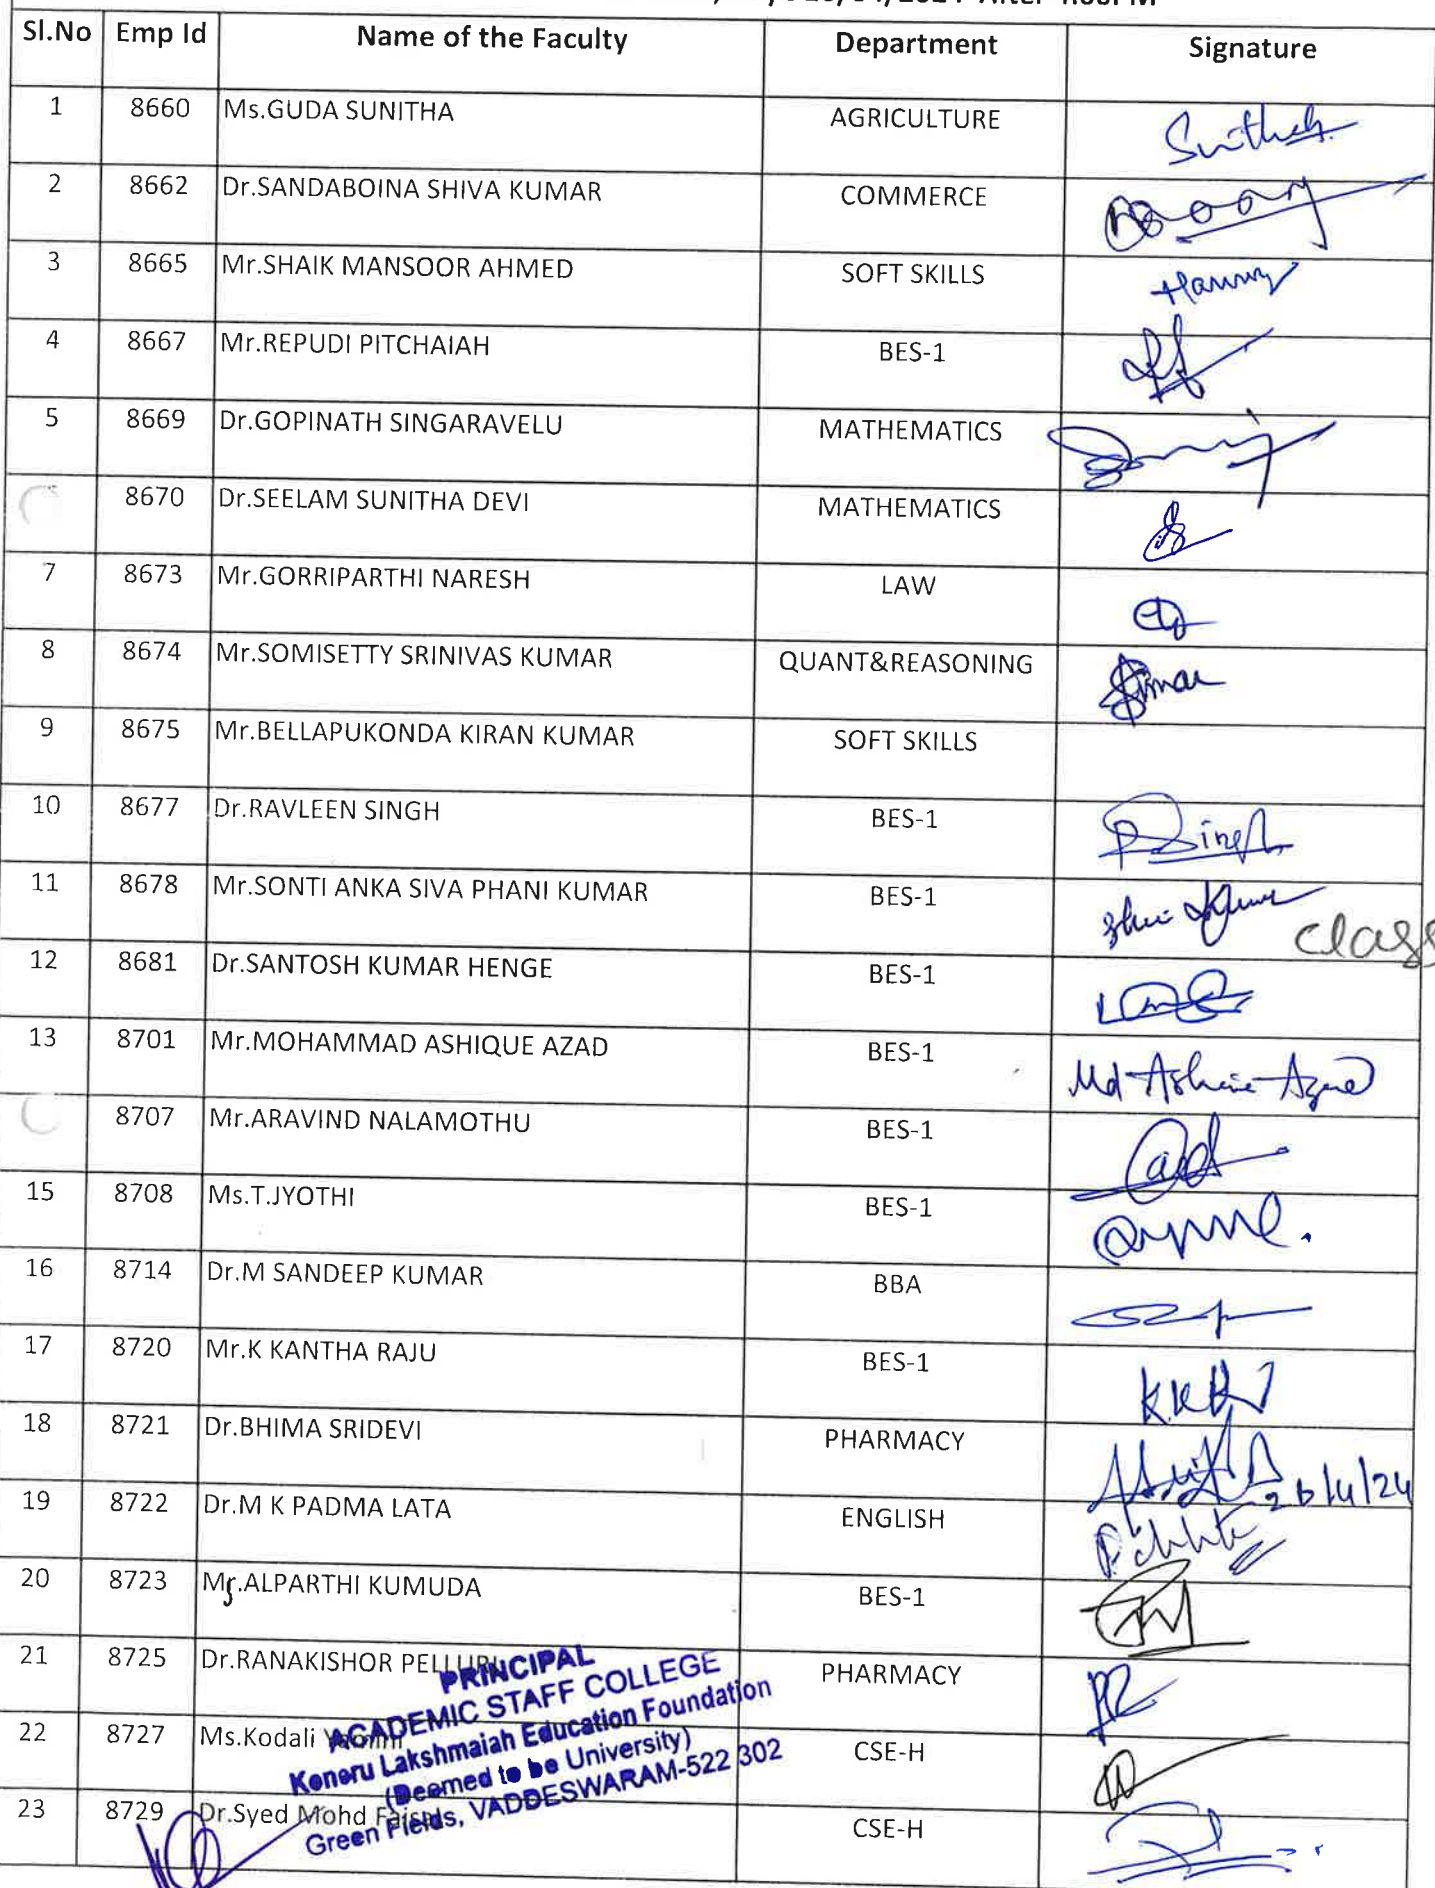 Sl.No Emp Id Name of the Faculty Department Signature
1 8660 Ms.GUDA SUNITHA AGRICULTURE Sunitha
2 8662 Dr.SANDABOINA SHIVA KUMAR COMMERCE
3 8665 Mr.SHAIK MANSOOR AHMED SOFT SKILLS
4 8667 Mr.REPUDI PITCHAIAH BES-1
5 8669 Dr.GOPINATH SINGARAVELU MATHEMATICS
8670 Dr.SEELAM SUNITHA DEVI MATHEMATICS
7 8673 Mr.GORRIPARTHI NARESH LAW
8 8674 Mr.SOMISETTY SRINIVAS KUMAR QUANT&REASONING
9 8675 Mr.BELLAPUKONDA KIRAN KUMAR SOFT SKILLS
10 8677 Dr.RAVLEEN SINGH BES-1 RSingh
11 8678 Mr.SONTI ANKA SIVA PHANI KUMAR BES-1
class
12 8681 Dr.SANTOSH KUMAR HENGE BES-1
13 8701 Mr.MOHAMMAD ASHIQUE AZAD BES-1 Md Ashique Azad
8707 Mr.ARAVIND NALAMOTHU BES-1
15 8708 Ms.T.JYOTHI BES-1
16 8714 Dr.M SANDEEP KUMAR BBA
17 8720 Mr.K KANTHA RAJU BES-1
18 8721 Dr.BHIMA SRIDEVI PHARMACY 26/4/24
19 8722 Dr.M K PADMA LATA ENGLISH
20 8723 Ms.ALPARTHI KUMUDA BES-1
21 8725 Dr.RANAKISHOR PELLURI PHARMACY
22 8727 Ms.Kodali CSE-H
23 8729 Dr.Syed Mohd Faisal CSE-H
PRINCIPAL
ACADEMIC STAFF COLLEGE
Koneru Lakshmaiah Education Foundation
(Deemed to be University)
Green Fields, VADDESWARAM-522 302